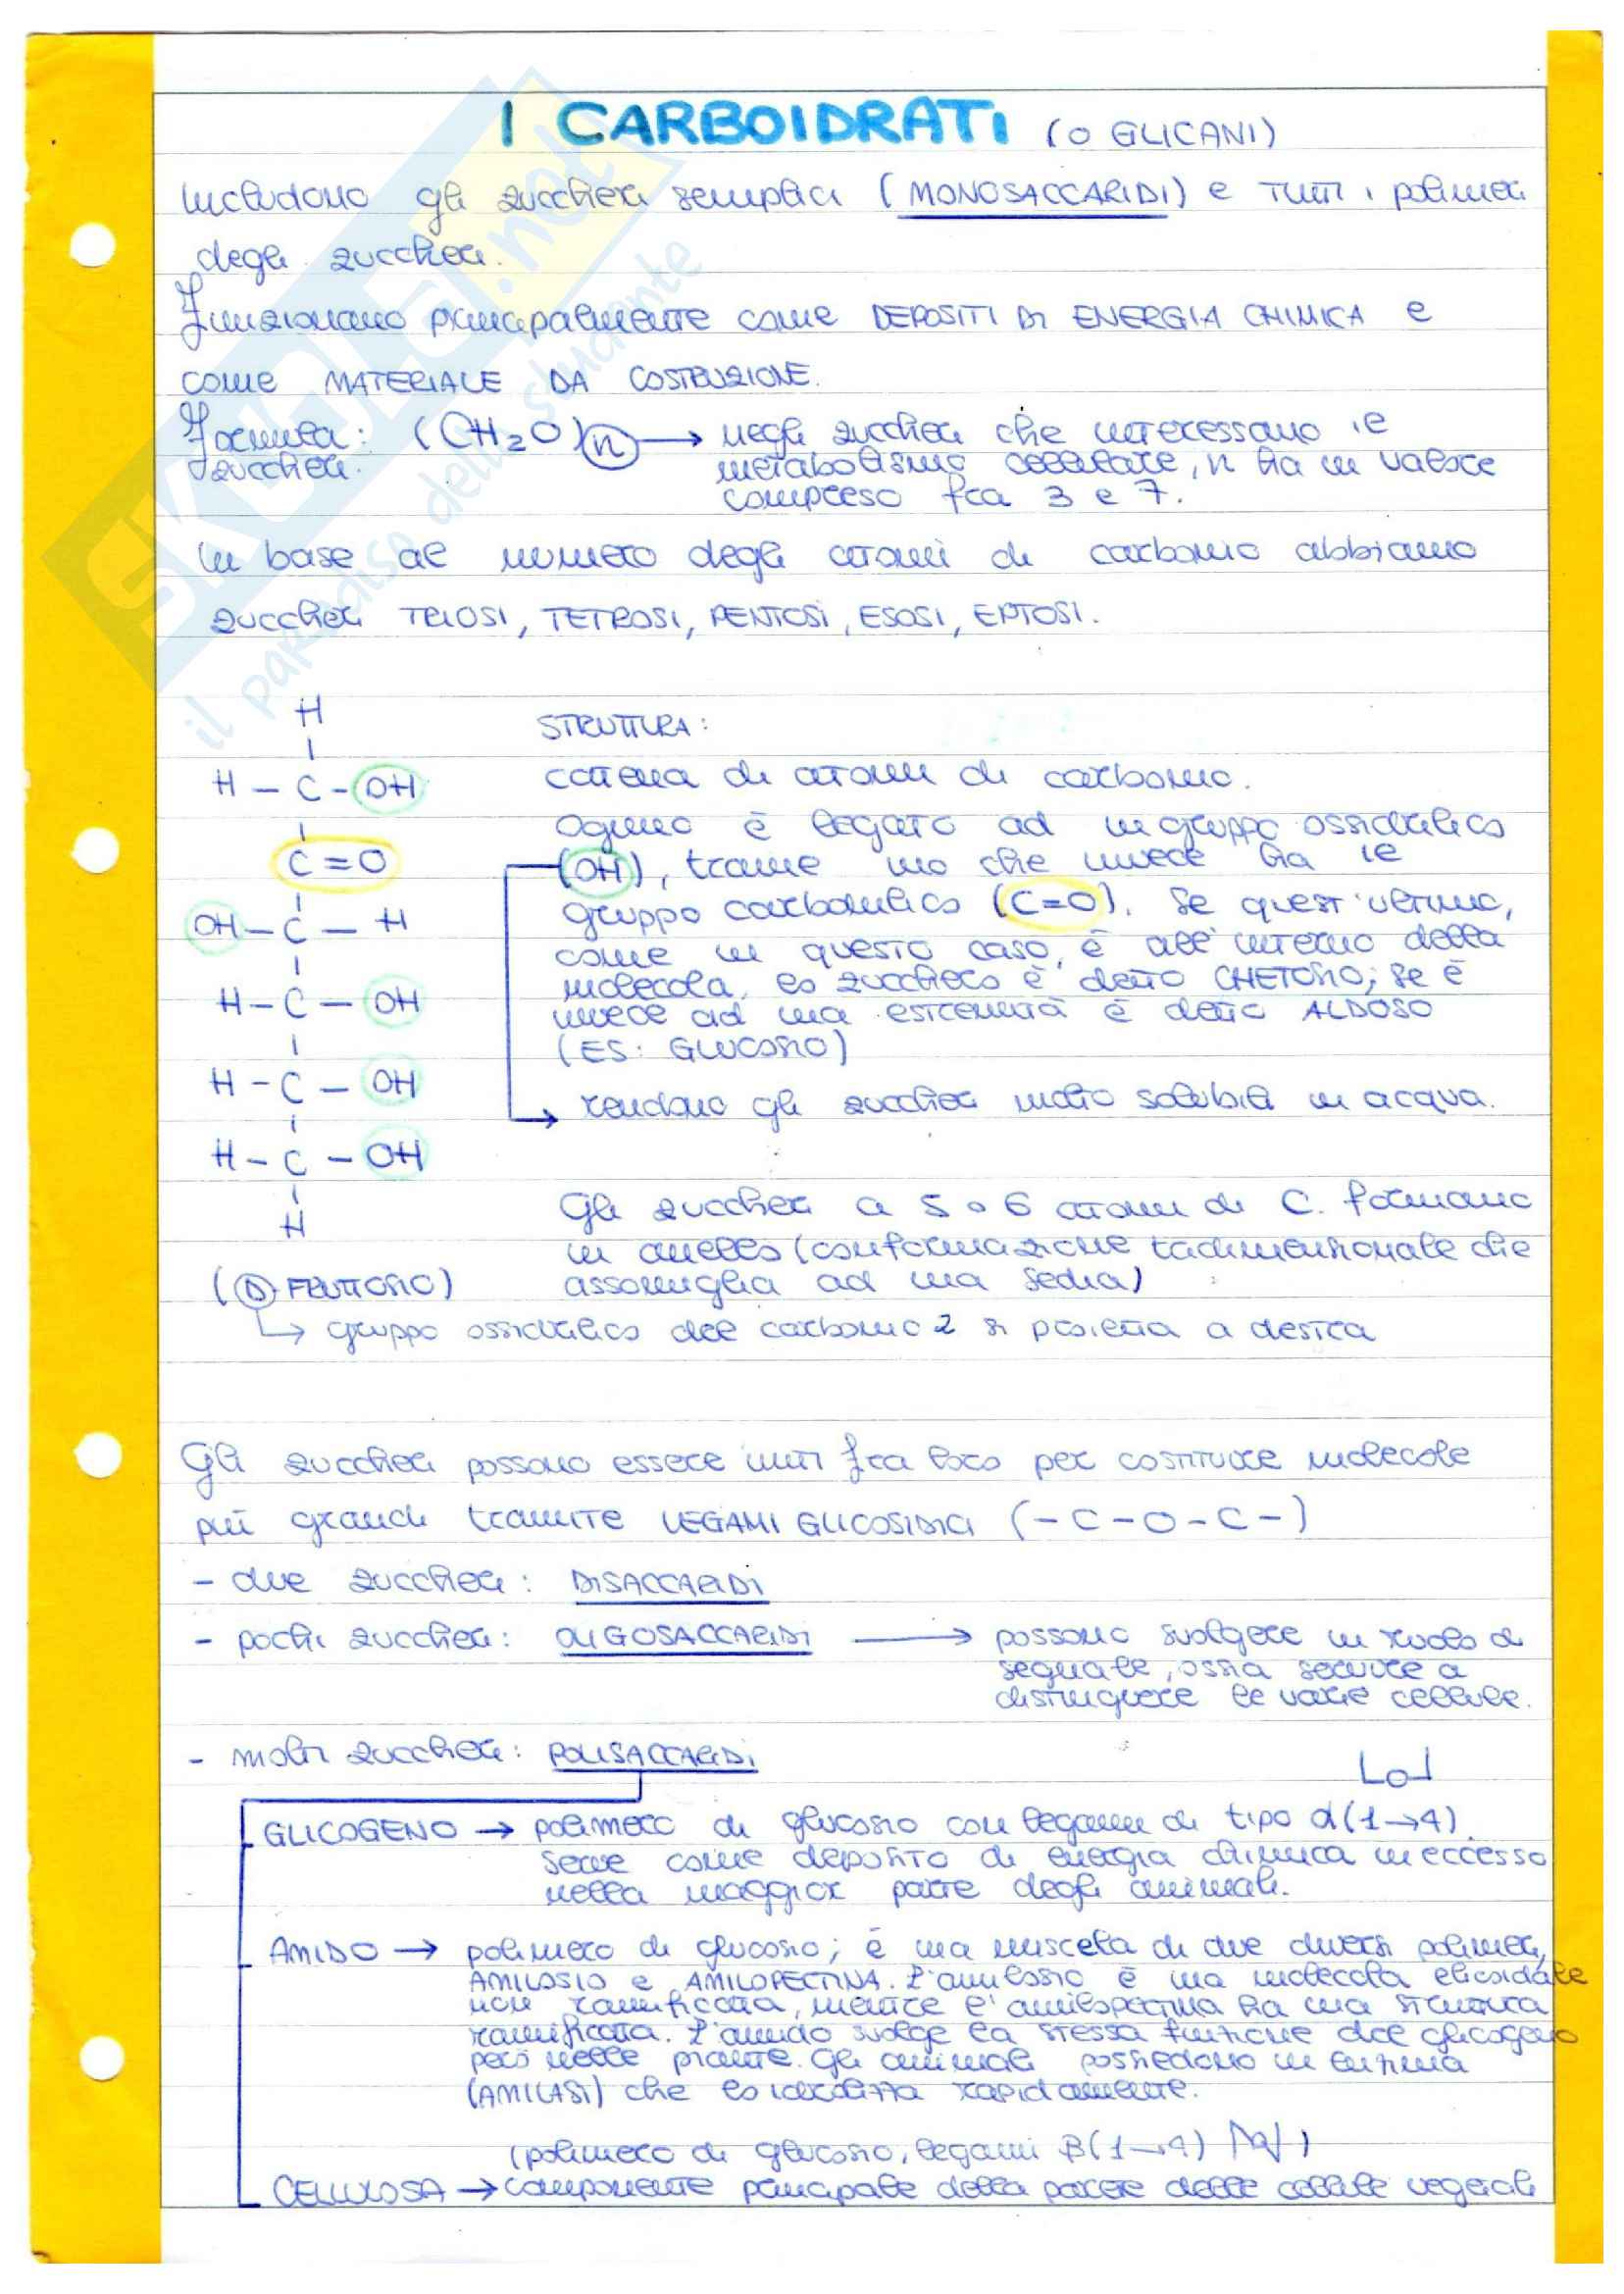 I CARBOIDRATI (O GLICANI)
Includono gli zuccheri semplici (MONOSACCARIDI) e TUTTI i polimeri
degli zuccheri.
Funzionano principalmente come DEPOSITI DI ENERGIA CHIMICA e
come MATERIALE DA COSTRUZIONE.
Formula: (CH₂O)n → negli zuccheri che interessano il
zuccheri. metabolismo cellulare, n ha un valore
compreso fra 3 e 7.
In base al numero degli atomi di carbonio abbiamo
zuccheri TRIOSI, TETROSI, PENTOSI, ESOSI, EPTOSI.
H
STRUTTURA:
H – C – OH
catena di atomi di carbonio.
Ognuno è legato ad un gruppo ossidrilico
C = O
(OH), tranne uno che invece ha il
gruppo carbonilico (C=O). Se quest'ultimo,
OH – C – H
come in questo caso, è all'interno della
molecola, lo zucchero è detto CHETOSIO; se è
H – C – OH
invece ad una estremità è detto ALDOSO
(ES: GLUCOSIO)
H – C – OH
→ rendono gli zuccheri molto solubili in acqua.
H – C – OH
H
Gli zuccheri a 5 o 6 atomi di C. formano
un anello (conformazione tridimensionale che
assomiglia ad una sedia)
(D FRUTTOSIO)
→ gruppo ossidrilico del carbonio 2 si proietta a destra
Gli zuccheri possono essere uniti fra loro per costituire molecole
più grandi tramite LEGAMI GLICOSIDICI (– C – O – C –)
– due zuccheri: DISACCARIDI
– pochi zuccheri: OLIGOSACCARIDI → possono svolgere un ruolo di
segnale, ossia servire a
distinguere le varie cellule.
– molti zuccheri: POLISACCARIDI
GLICOGENO → polimero di glucosio con legami di tipo α(1→4).
Serve come deposito di energia chimica in eccesso
nella maggior parte degli animali.
AMIDO → polimero di glucosio; è una miscela di due diversi polimeri,
AMILOSIO e AMILOPECTINA. L'amilosio è una molecola elicoidale
non ramificata, mentre l'amilopectina ha una struttura
ramificata. L'amido svolge la stessa funzione del glicogeno
però nelle piante. Gli animali possiedono un enzima
(AMILASI) che lo idrolizza rapidamente.
(polimero di glucosio, legami β(1→4))
CELLULOSA → componente principale della parete delle cellule vegetali
SKUOLA.net
il paradiso dello studente